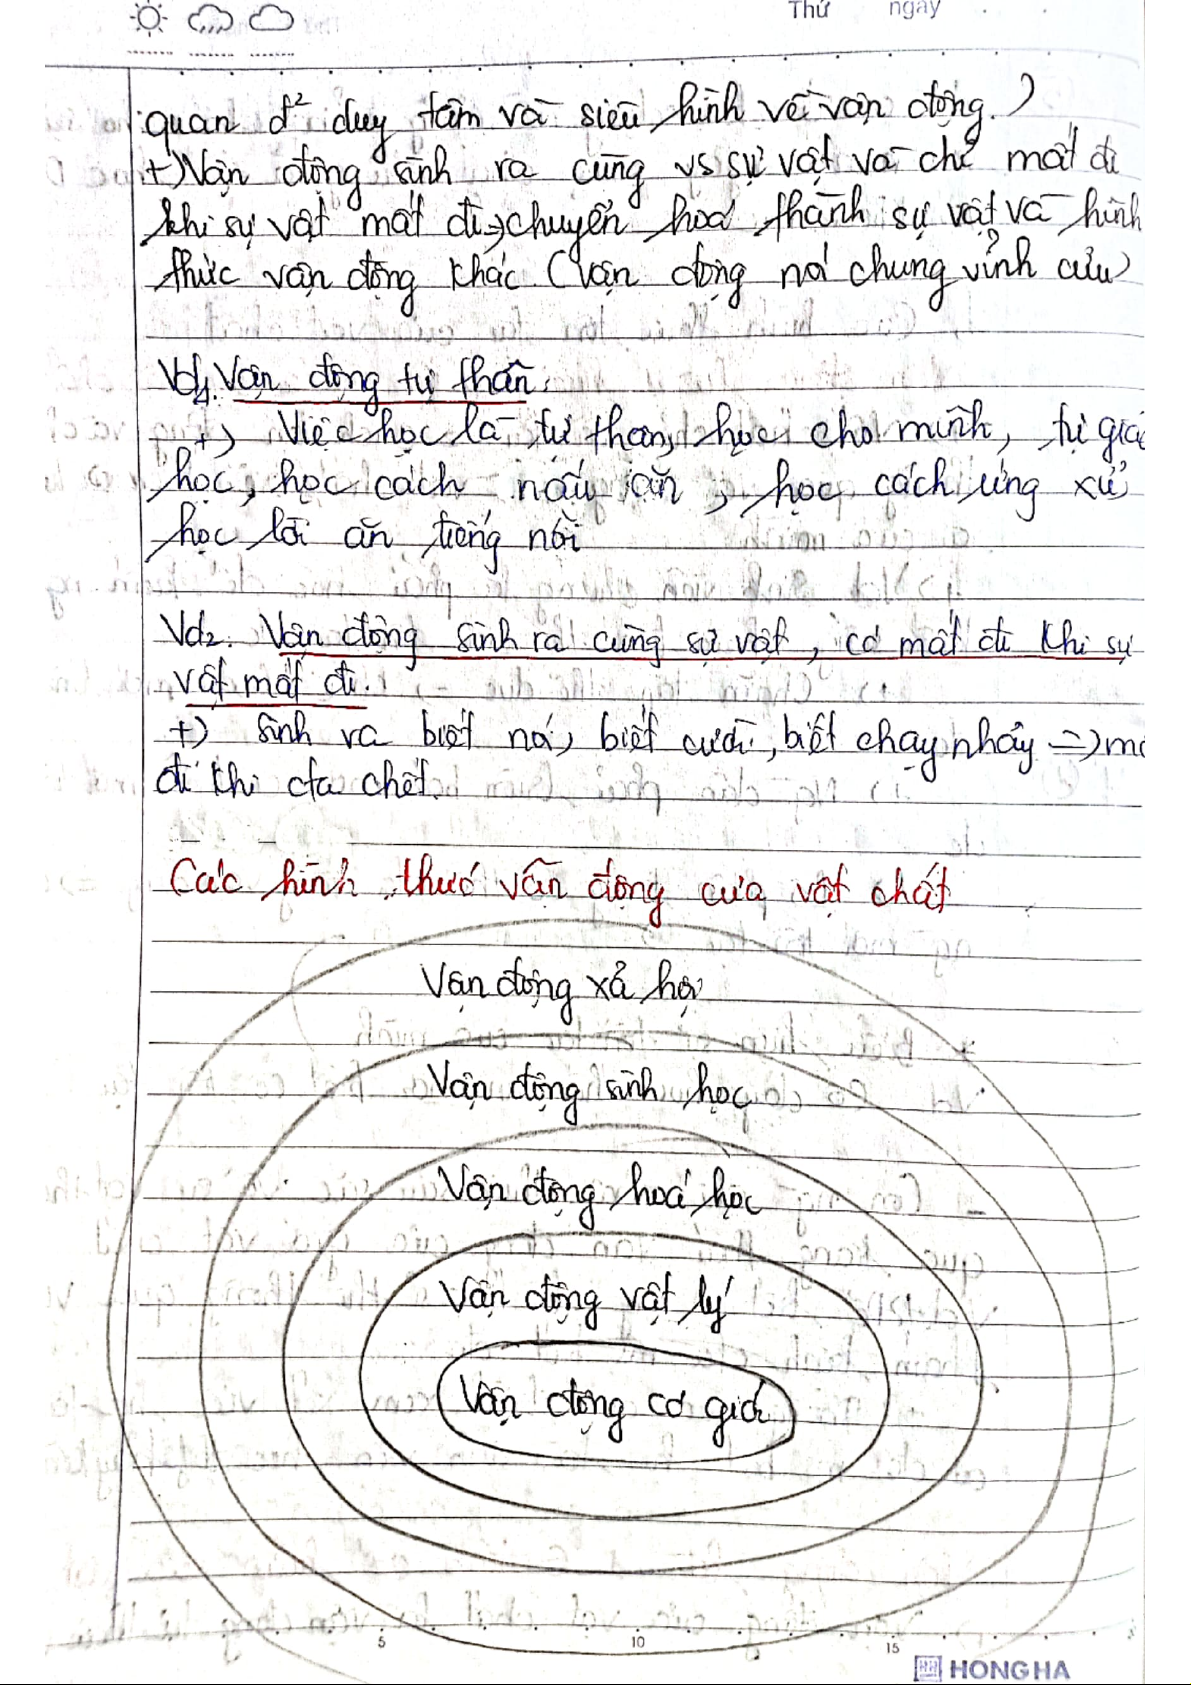 Thứ ngày
quan đ² duy tâm và siêu hình về vận động.)
+) Vận động sinh ra cùng vs sự vật và chỉ mất đi
khi sự vật mất đi → chuyển hoá thành sự vật và hình
thức vận động khác (vận động nói chung vĩnh cửu)
Vd1. Vận động tự thân:
+) Việc học là tự thân, học cho mình, tự giác
học, học cách nấu ăn, học cách ứng xử
học lời ăn tiếng nói
Vd2. Vận động sinh ra cùng sự vật, cơ mất đi khi sự
vật mất đi.
+) sinh ra biết nói, biết cười, biết chạy nhảy =>
đi khi ta chết.
Các hình thức vận động của vật chất
Vận động xã hội
Vận động sinh học
Vận động hoá học
Vận động vật lý
Vận động cơ giới
5 10 15
HONG HA